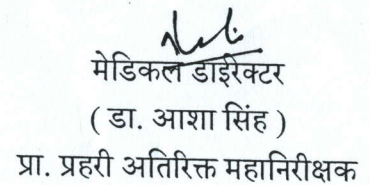 मेडिकल डाइरेक्टर
( डा. आशा सिंह )
प्रा. प्रहरी अतिरिक्त महानिरीक्षक